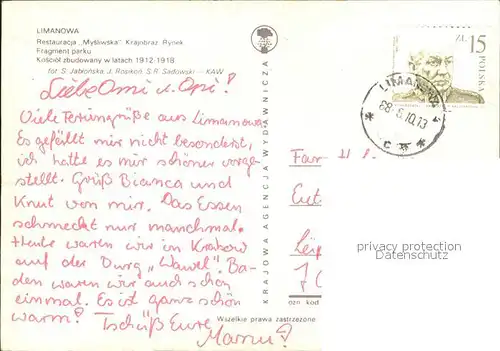 LIMANOWA
Restauracja „Myśliwska” Krajobraz Rynek
Fragment parku
Kościół zbudowany w latach 1912-1918
fot. S. Jabłońska, J. Rosikoń, S.R. Sadowski — KAW
Liebe Omi u. Opi!
Viele Feriengrüße aus Limanowa.
Es gefällt mir nicht besonders,
ich hatte es mir schöner vorge-
stellt. Grüß Bianca und
Knut von mir. Das Essen
schmeckt nur manchmal.
Heute waren wir in Krakow
auf der Burg „Wawel”. Ba-
den waren wir auch schon
einmal. Es ist ganz schön
warm! Tschüß Eure
KRAJOWA AGENCJA WYDAWNICZA
Wszelkie prawa zastrzeżone
ZŁ 15
POLSKA
LIMANOWA
Fam
Eut
Leip
ozn. kod
Privacy protection
Datenschutz